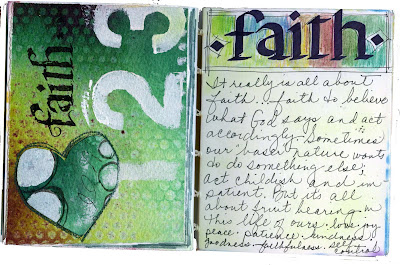 faith
123
faith
It really is all about
faith. Faith to believe
what God says and act
accordingly. Sometimes
our baser nature wants
to do something else;
act childish and im
patient. But its all
about fruit bearing in
this life of ours. love. joy
peace. patience. kindness
goodness. faithfulness. self
control